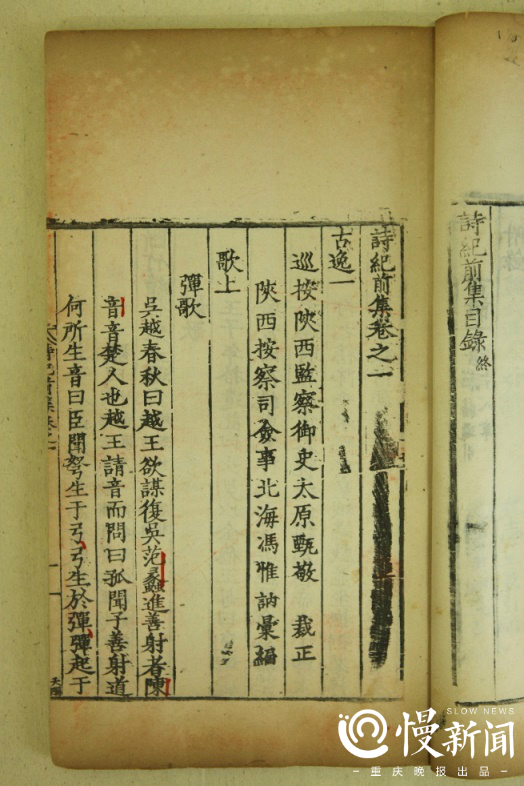 詩紀前集目錄終
詩紀前集卷之一
古逸一
巡按陝西監察御史太原甄敬 裁正
陝西按察司僉事北海馮惟訥彙編
歌上
彈歌
吳越春秋曰越王欲謀復吳范蠡進善射者陳
音音楚人也越王請音而問曰孤聞子善射道
何所生音曰臣聞弩生于弓弓生於彈彈起于
SLOW NEWS
慢新闻
-重庆晚报出品-